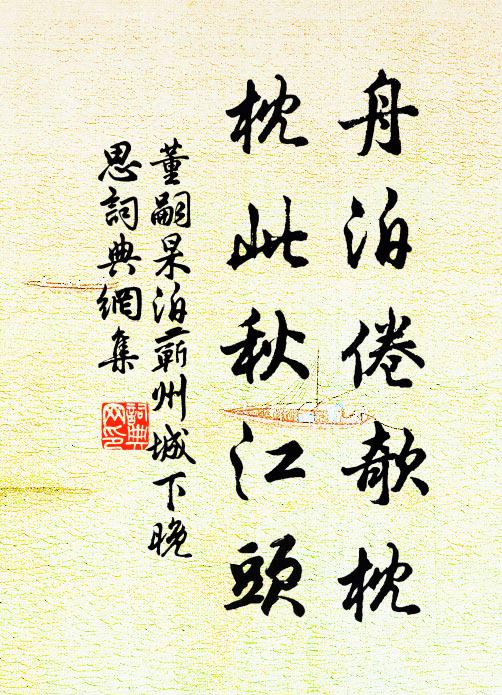 舟泊倦欹枕
枕此秋江頭
董嗣杲泊蘄州城下晚
思詞典網集
詞典
网印